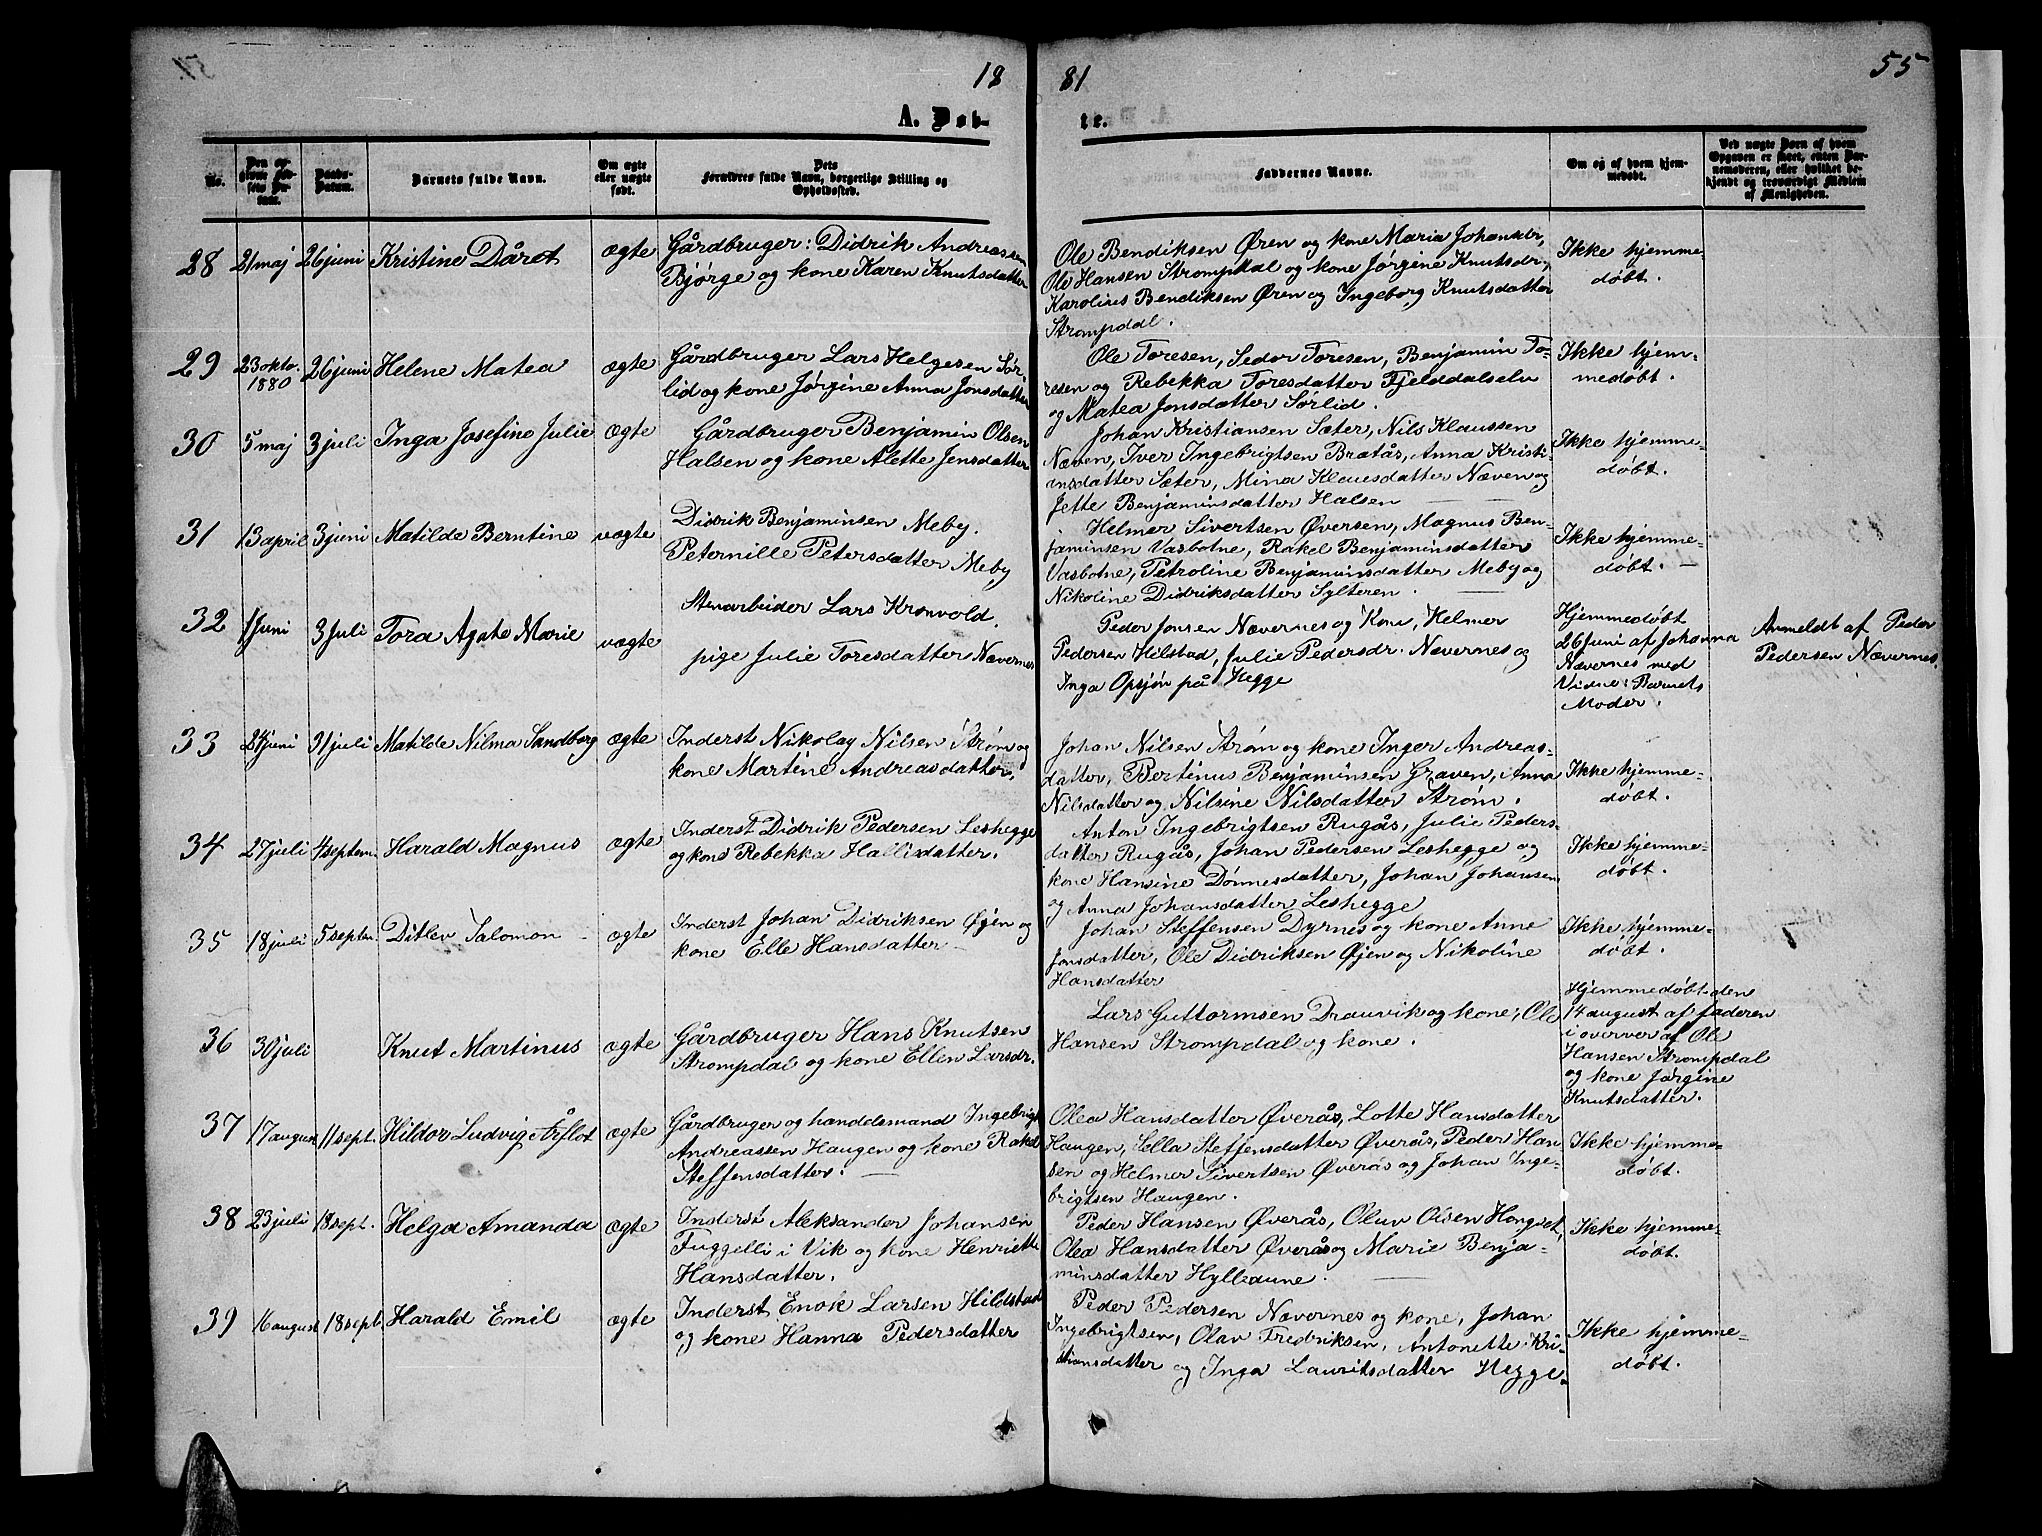 18 81 55
A. Døb- te.
No.
Den op-
givne Fød-
sels Da-
tum.
Daabs-
Datum.
Barnets fulde Navn.
Om ægte
eller uægte
født.
Dets
Forældres fulde Navn, borgerlige Stilling og
Opholdssted.
Faddernes Navne.
Om og af hvem hjem-
medøbt.
Ved uægte Børn af hvem
Opgaven er skeet, enten Bar-
nemoderen, eller hvilket be-
kjendt og troværdigt Medlem
af Menigheden.
28 21 maj 26 juni Kristine Dåret ægte
Gårdbruger: Didrik Andreassen
Bjørge og kone Karen Knutsdatter
Ole Bendiksen Øren og kone Maria Johansdr,
Ole Hansen Strompdal og kone Jørgine Knutsdr,
Karolius Bendiksen Øren og Ingeborg Knutsdatter
Strompdal.
Ikke hjemme-
døbt.
29 23 okto. 1880 26 juni Helene Matea ægte
Gårdbruger Lars Helgesen Sør-
lid og kone Jørgine Anna Jonsdatter
Ole Toresen, Sedor Toresen, Benjamin To-
resen og Rebekka Toresdatter Fjelddalselv
og Matea Jonsdatter Sørlid.
Ikke hjem-
medøbt.
30 5 maj 3 juli Inga Josefine Julie ægte
Gårdbruger Benjamin Olsen
Halsen og kone Alette Jensdatter
Johan Kristiansen Sæter, Nils Klaussen
Næven, Iver Ingebrigtsen Bratås, Anna Kristi-
nsdatter Sæter, Mina Klausdatter Næven og
Jette Benjaminsdatter Halsen
Ikke hjemme-
døbt.
31 13 april 3 juni Matilde Berntine uægte
Didrik Benjaminsen Meby.
Peternille Petersdatter Meby
Helmer Sivertsen Øversen, Magnus Ben-
jaminsen Vasbotne, Rakel Benjaminsdatter
Vasbotne, Petroline Benjaminsdatter Meby og
Nikoline Didriksdatter Sylteren.
Ikke hjemme-
døbt.
32 1 Juni 3 Juli Tora Agate Marie uægte
Stenarbeider Lars Kronvold.
pige Julie Toresdatter Nævernes
Peder Jonsen Nævernes og Kone, Helmer
Pedersen Hilstad, Julie Pedersdr. Nævernes og
Inga Opsjøn på Hegge
Hjemmedøbt
26 Juni af Johanna
Nævernes med
Vidne: Barnets
Moder.
Anmeldt af Peder
Pedersen Nævernes.
33 24 juni 31 juli Matilde Nilma Sandborg ægte
Inderst Nikolay Nilsen Strøm og
kone Martine Andreasdatter.
Johan Nilsen Strøm og kone Inger Andreas-
datter, Bertinus Benjaminsen Graven, Anna
Nilsdatter og Nilsine Nilsdatter Strøm.
Ikke hjemme-
døbt.
34 27 juli 4 septem. Harald Magnus ægte
Inderst Didrik Pedersen Leshegge
og kone Rebekka Hallisdatter.
Anton Ingebrigtsen Rugås, Julie Peders-
datter Rugås, Johan Pedersen Leshegge og
kone Hansine Dønnesdatter, Johan Johansen
og Anna Johansdatter Leshegge
Ikke hjemme-
døbt.
35 18 juli 5 septem. Ditlev Salomon ægte
Inderst Johan Didriksen Øjen og
kone Elle Hansdatter
Johan Steffensen Dyrnes og kone Anne
Jonsdatter, Ole Didriksen Øjen og Nikoline
Hansdatter
Ikke hjemme-
døbt.
36 30 juli Knut Martinus ægte
Gårdbruger Hans Knutsen
Strompdal og kone Ellen Larsdr.
Lars Guttormsen Drauvik og kone, Ole
Hansen Strompdal og kone.
Hjemmedøbt den
14 august af faderen
i overver af Ole
Hansen Strompdal
og kone Jørgine
Knutsdatter.
37 17 august 11 sept. Hildor Ludvig Årflot ægte
Gårdbruger og handelsmand Ingebrigt
Andreassen Haugen og kone Rakel
Steffensdatter.
Olea Hansdatter Øverås, Lotte Hansdatter
Haugen, Sella Steffensdatter Øverås, Peder Han-
sen og Helmer Sivertsen Øverås og Johan Inge-
brigtsen Haugen.
Ikke hjemme-
døbt.
38 23 juli 18 sept. Helga Amanda ægte
Inderst Aleksander Johansen
Fuggelli i Vik og kone Henriette
Hansdatter.
Peder Hansen Øverås, Oluv Olsen Hongset,
Olea Hansdatter Øverås og Marie Benja-
minsdatter Hylleaune.
Ikke hjemme-
døbt.
39 16 august 18 sept. Harald Emil ægte
Inderst Enok Larsen Hildstad
og kone Hanna Pedersdatter
Peder Pedersen Nævernes og kone, Johan
Ingebrigtsen, Olav Fredriksen, Antonette Kri-
stiansdatter og Inga Lauritsdatter Hegge.
Ikke hjemme-
døbt.